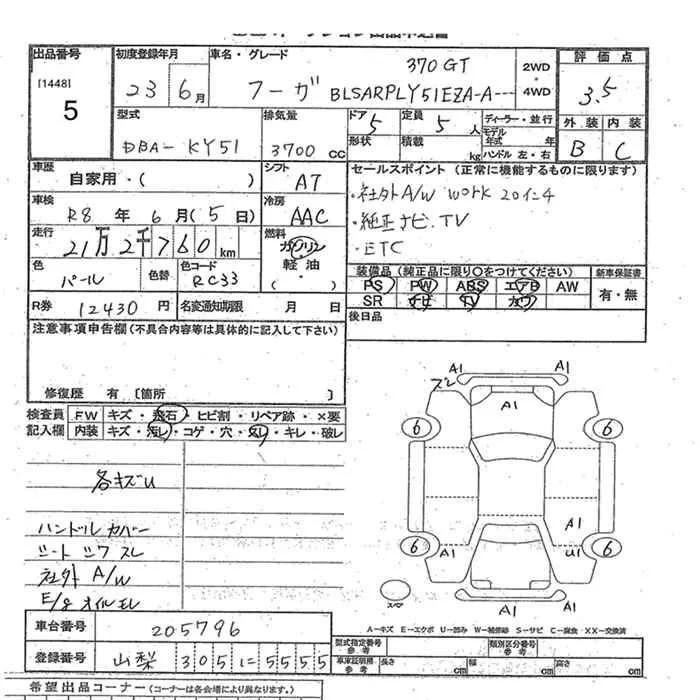 出品番号 初度登録年月 車名・グレード 評価点
[1448] 5
23年 6月 フーガ 370GT 2WD・4WD 3.5
BLSARPLY51EZA-A---
型式 排気量 ドア 定員 ディーラー・並行
DBA-KY51 3700cc 5 5人 モデル年式 年
形状 積載 kg ハンドル 左・右
外装 内装
B C
車歴 シフト セールスポイント(正常に機能するものに限ります)
自家用・( ) AT
・社外A/W WORK 20インチ
車検 冷房
R8年 6月(5日) AAC
・純正ナビ. TV
走行 燃料
21万2千760km ガソリン
・ETC
軽油
・( )
色 色替 色コード
パール RC33
装備品(純正品に限り○をつけてください) 新車保証書
PS PW ABS エアB AW 有・無
SR ナビ TV カワ
R券 12430円 名変通知期限 月 日
後日品
注意事項申告欄(不具合内容等は具体的に記入して下さい)
修復歴 有〔箇所 〕
検査員 FW キズ・飛石・ヒビ割・リペア跡・×要
記入欄 内装 キズ・汚レ・コゲ・穴・スレ・キレ・破レ
各キズU
ハンドル カバー
シート シワ スレ
社外 A/W
E/g オイルモレ
A1 A1
ズレ
A1
6 6
A1
6 A1 U1 6
A1 A1
A=キズ E=エクボ U=凹み W=補修跡 S=サビ C=腐食 XX=交換済
車台番号 205796
登録番号 山梨 305に5555
型式指定番号 参考 類別区分番号 参考
車庫証明用 参考 長さ cm 幅 cm 高さ cm
希望出品コーナー(コーナーは各会場により異なります)